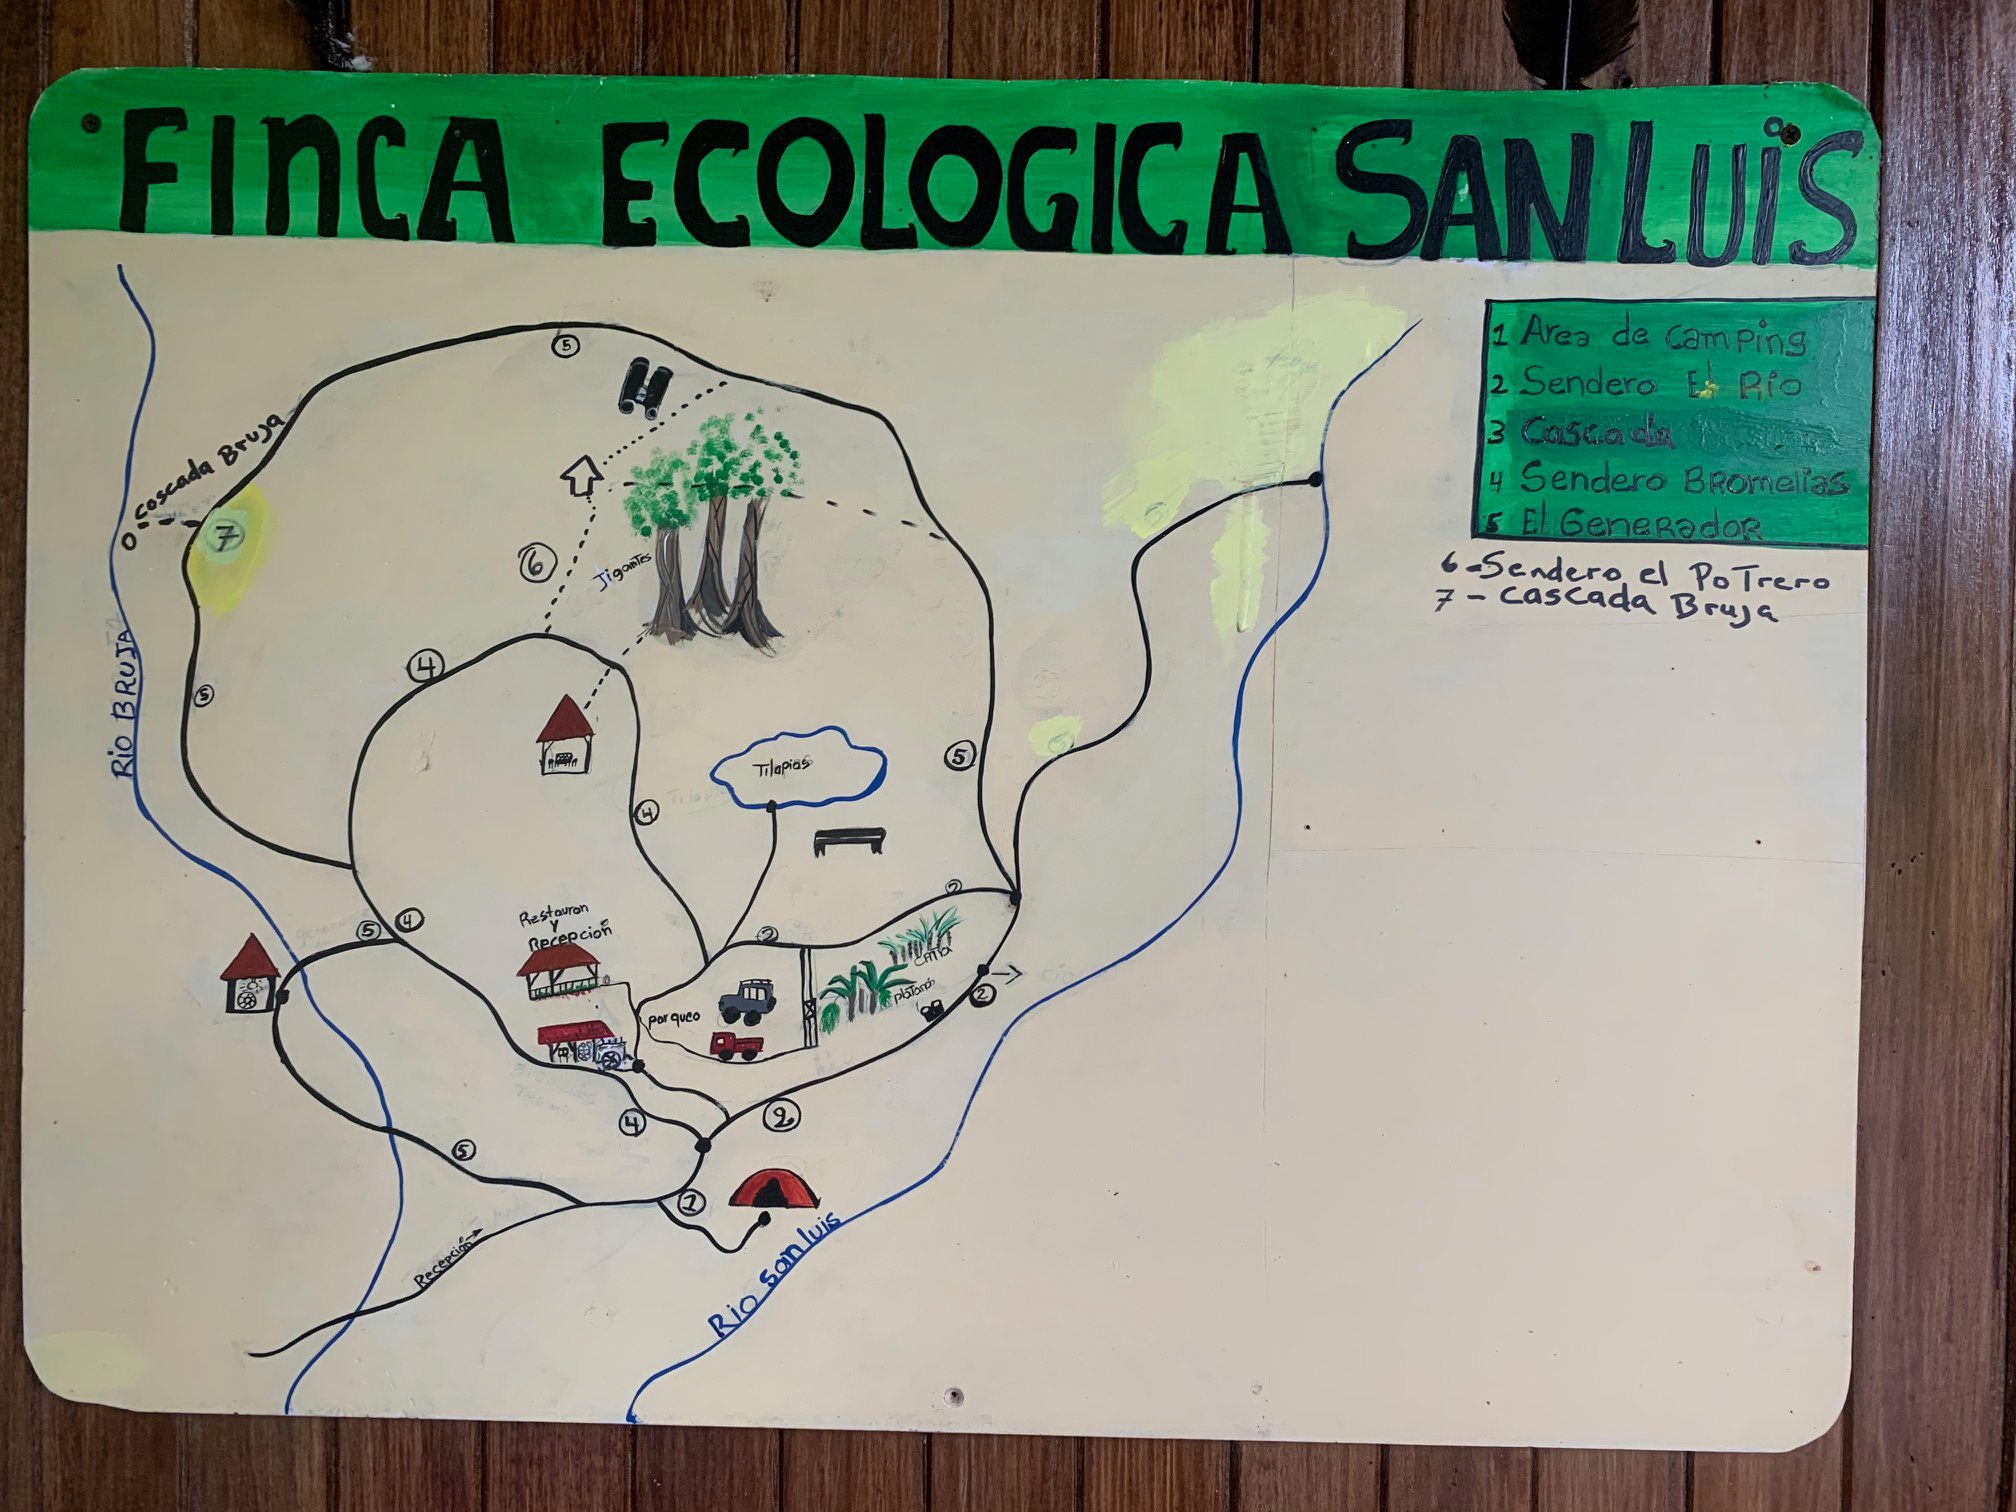 FINCA ECOLOGICA SAN LUiS
1 Area de camping
2 Sendero El Rio
3 Cascada
4 Sendero BROMElias
5 El GeneRadoR
6 - Sendero el PoTrero
7 - Cascada Bruja
5
Coscada Bruja
7
6
Jigantes
4
5
Rio BRUJA
5
Tilapias
4
Restauran
y
Recepción
5
4
2
2
platanos
2
parqueo
2
4
5
1
Recepción
Rio san luis